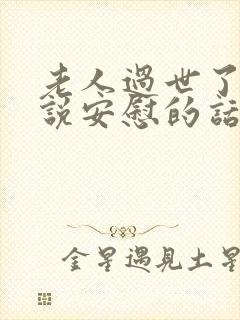 老人過世了
說安慰的話
金星遇見土星